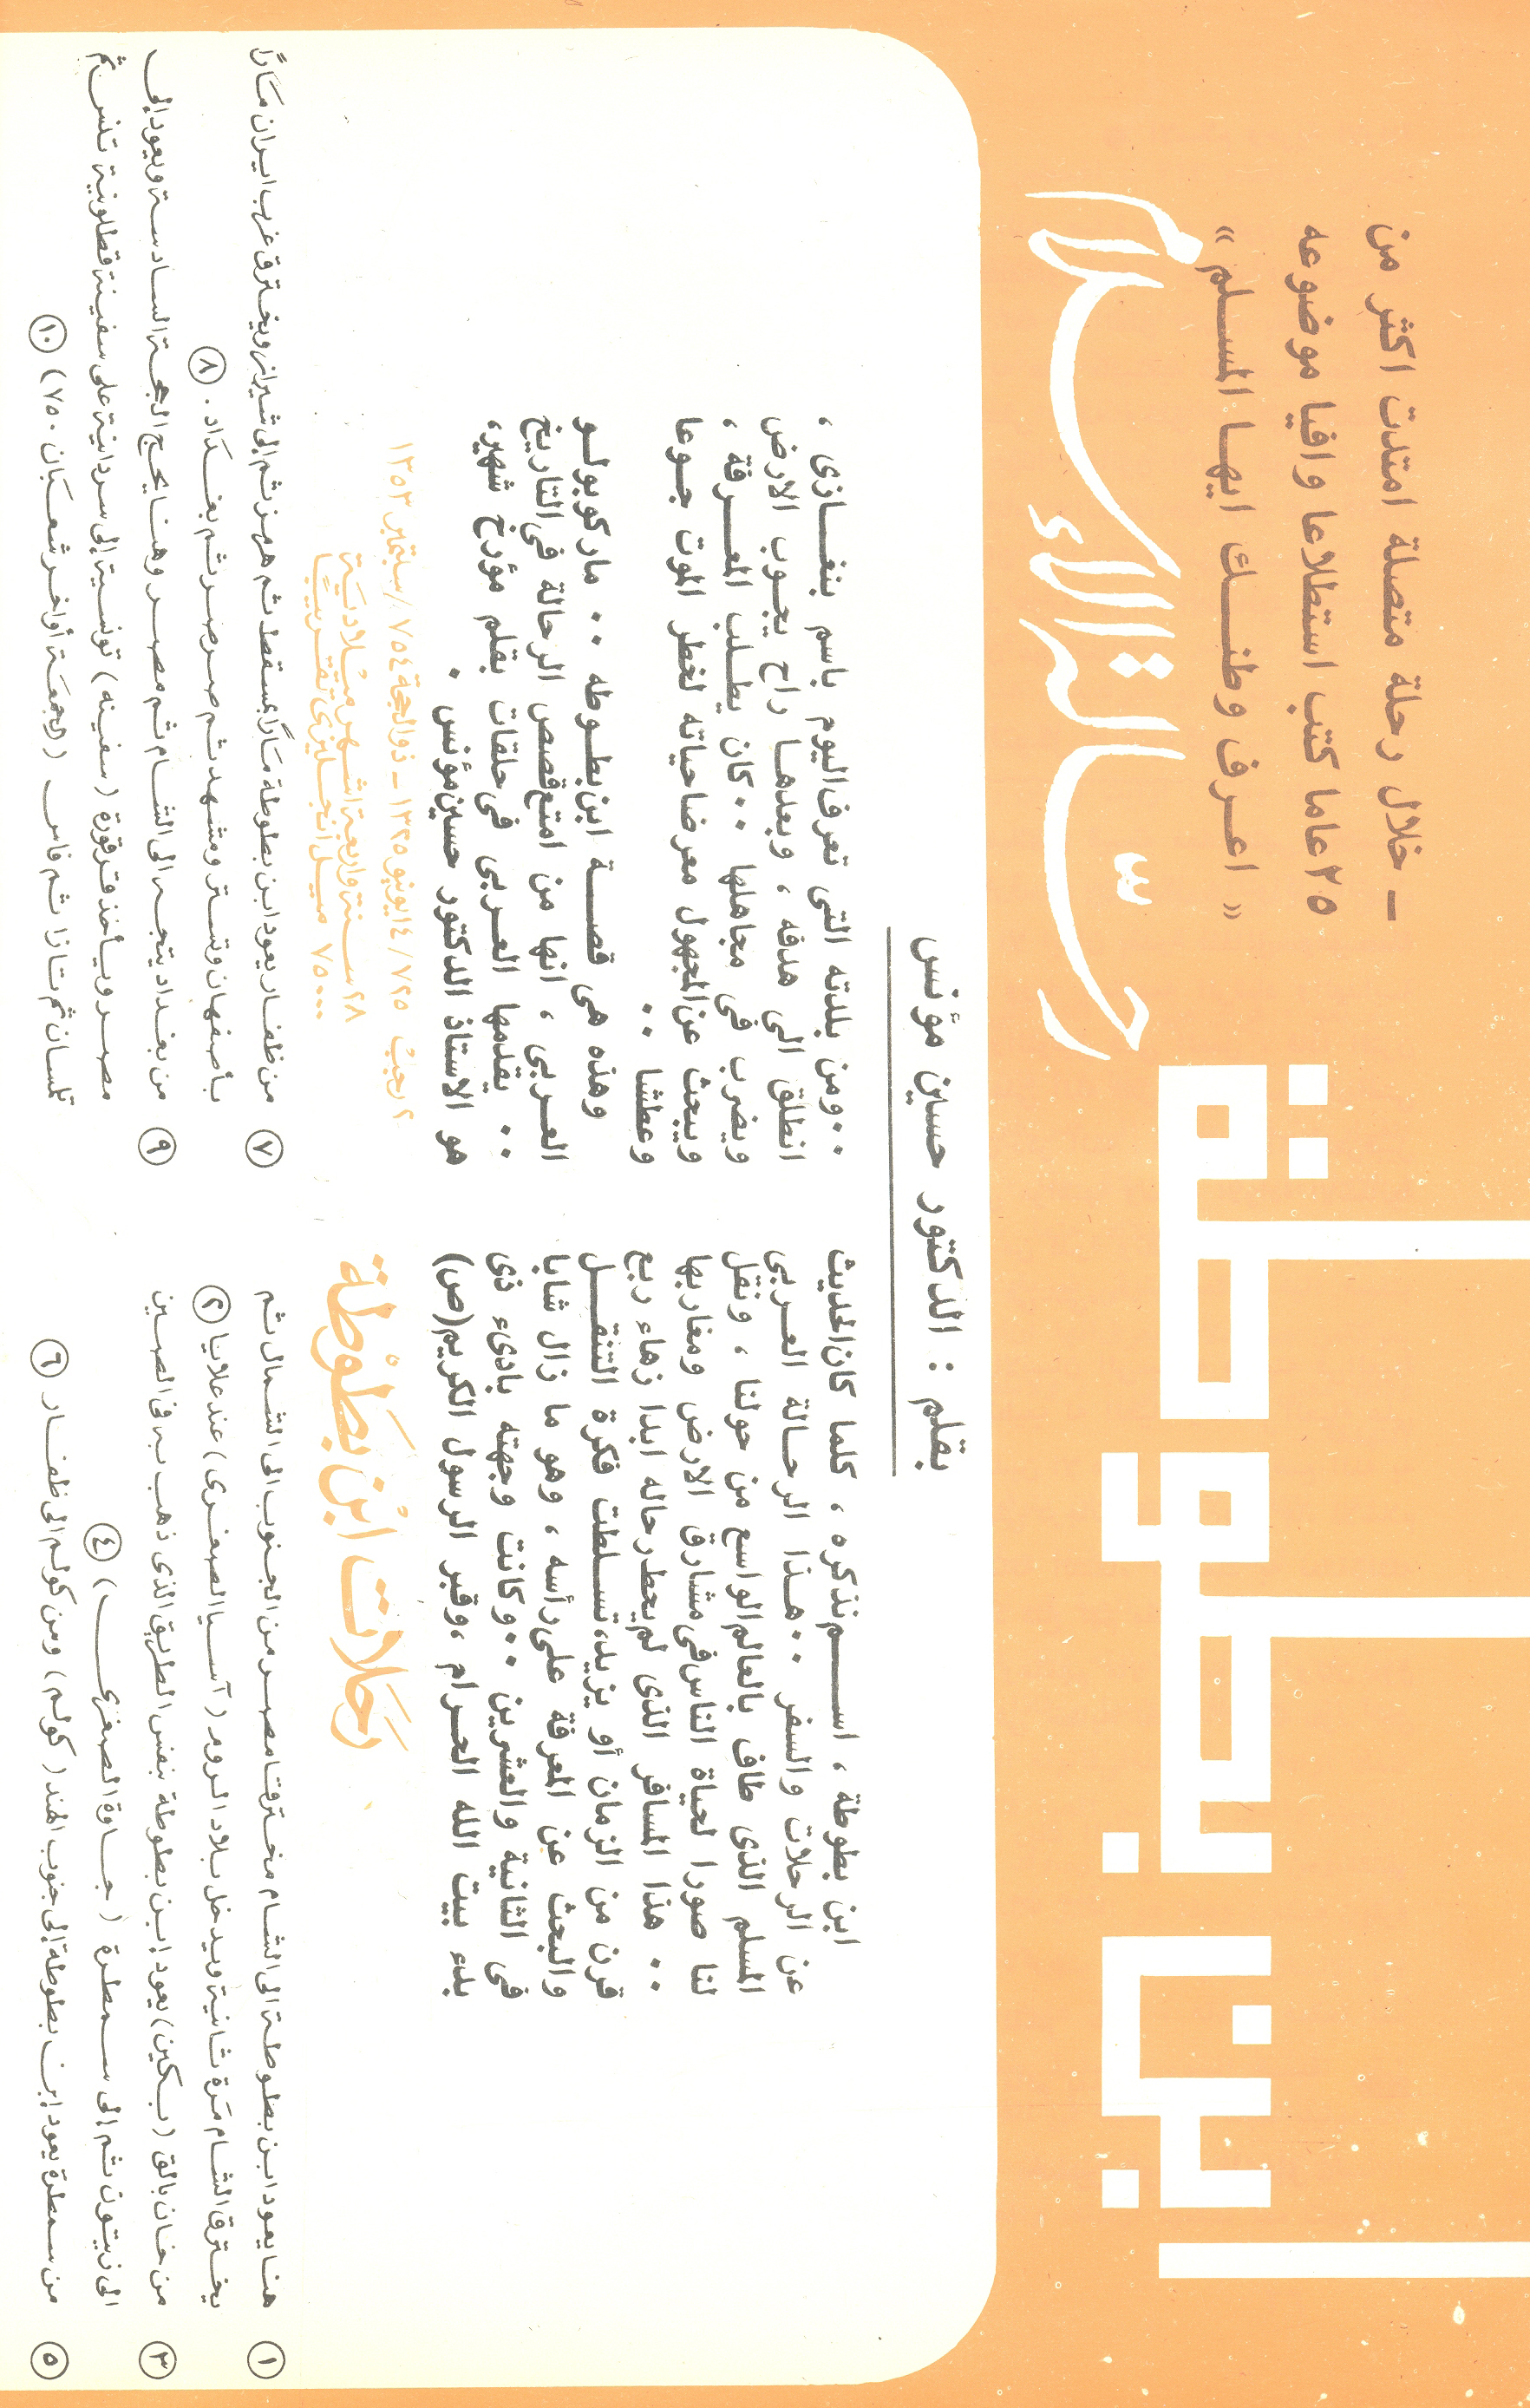 ابن بطوطة
رحّالة الإسلام
– خلال رحلة متصلة امتدت اكثر من
٢٥ عاما كتب استطلاعا وافيا موضوعه
« اعرف وطنك ايها المسلم »
بقلم : الدكتور حسين مؤنس
ابن بطوطة ، اسم نذكره ، كلما كان الحديث
عن الرحلات والسفر ٠٠ هذا الرحالة العربى
المسلم الذى طاف بالعالم الواسع من حولنا ، ونقل
لنا صورا لحياة الناس فى مشارق الارض ومغاربها
٠٠ هذا المسافر الذى لم يحط رحاله ابدا زهاء ربع
قرن من الزمان أو يزيد، تسلطت فكرة التنقل
والبحث عن المعرفة على رأسه ، وهو ما زال شابا
فى الثانية والعشرين ٠٠ وكانت وجهته بادىء ذى
بدء بيت الله الحرام ، وقبر الرسول الكريم (ص)
٠٠ ومن بلدته التى تعرف اليوم باسم بنغازى ،
انطلق الى هدفه ، وبعدها راح يجوب الارض
ويضرب فى مجاهلها ٠٠ كان يطلب المعرفة ،
ويبحث عن المجهول معرضا حياته لخطر الموت جوعا
وعطشا ٠٠
وهذه هى قصة ابن بطوطه ٠٠ ماركو بولو
العربى ، انها من امتع قصص الرحالة فى التاريخ
٠٠ يقدمها العربى فى حلقات بقلم مؤرخ شهير،
هو الاستاذ الدكتور حسين مؤنس ٠
رحَلات ابْن بَطوْطة
٢ رجب ٧٢٥ / ١٤ يونيو ١٣٢٥ – ذو الحجة ٧٥٤ / سبتمبر ١٣٥٣
٢٨ سنة واربعة اشهر ميلاديَة
٧٥٠٠٠ ميل انجليزى تقريبًا
١ هنا يعود ابن بطوطة الى الشام مخترقا مصر من الجنوب الى الشمال ثم
يخترق الشام مَرة ثانية ويدخل بلاد الروم (آسيا الصغرى) عند علايا ٢
٣ من خان بالق (بكين) يعود ابن بطوطة بنفس الطريق الذى ذهب به فى الصين
الى زيتون ثم إلى سمطرة (جاوة الصغرى) ٤
٥ من سمطرة يعود ابن بطوطة إلى جنوب الهند (كولم) ومن كولم الى ظفار ٦
٧ من ظفار يعود ابن بطوطة مَارًا بمسقط ثم هرمز ثم إلى شيراز ويخترق غرب ايران مَارًا
بأصفهان وتستر ومشهد ثم صرصر ثم بغداد. ٨
٩ من بغداد يتجه الى الشام ثم مصر وهنا يحج الحجة السادسة ويعود إلى
مصر ويأخذ قرقورة (سفينه) تونسية إلى سردانية على سفينة قطلونية تنس ثم
تلمسان ثم تازا ثم فاس (الجمعَة أواخر شعبَان ٧٥٠) ١٠